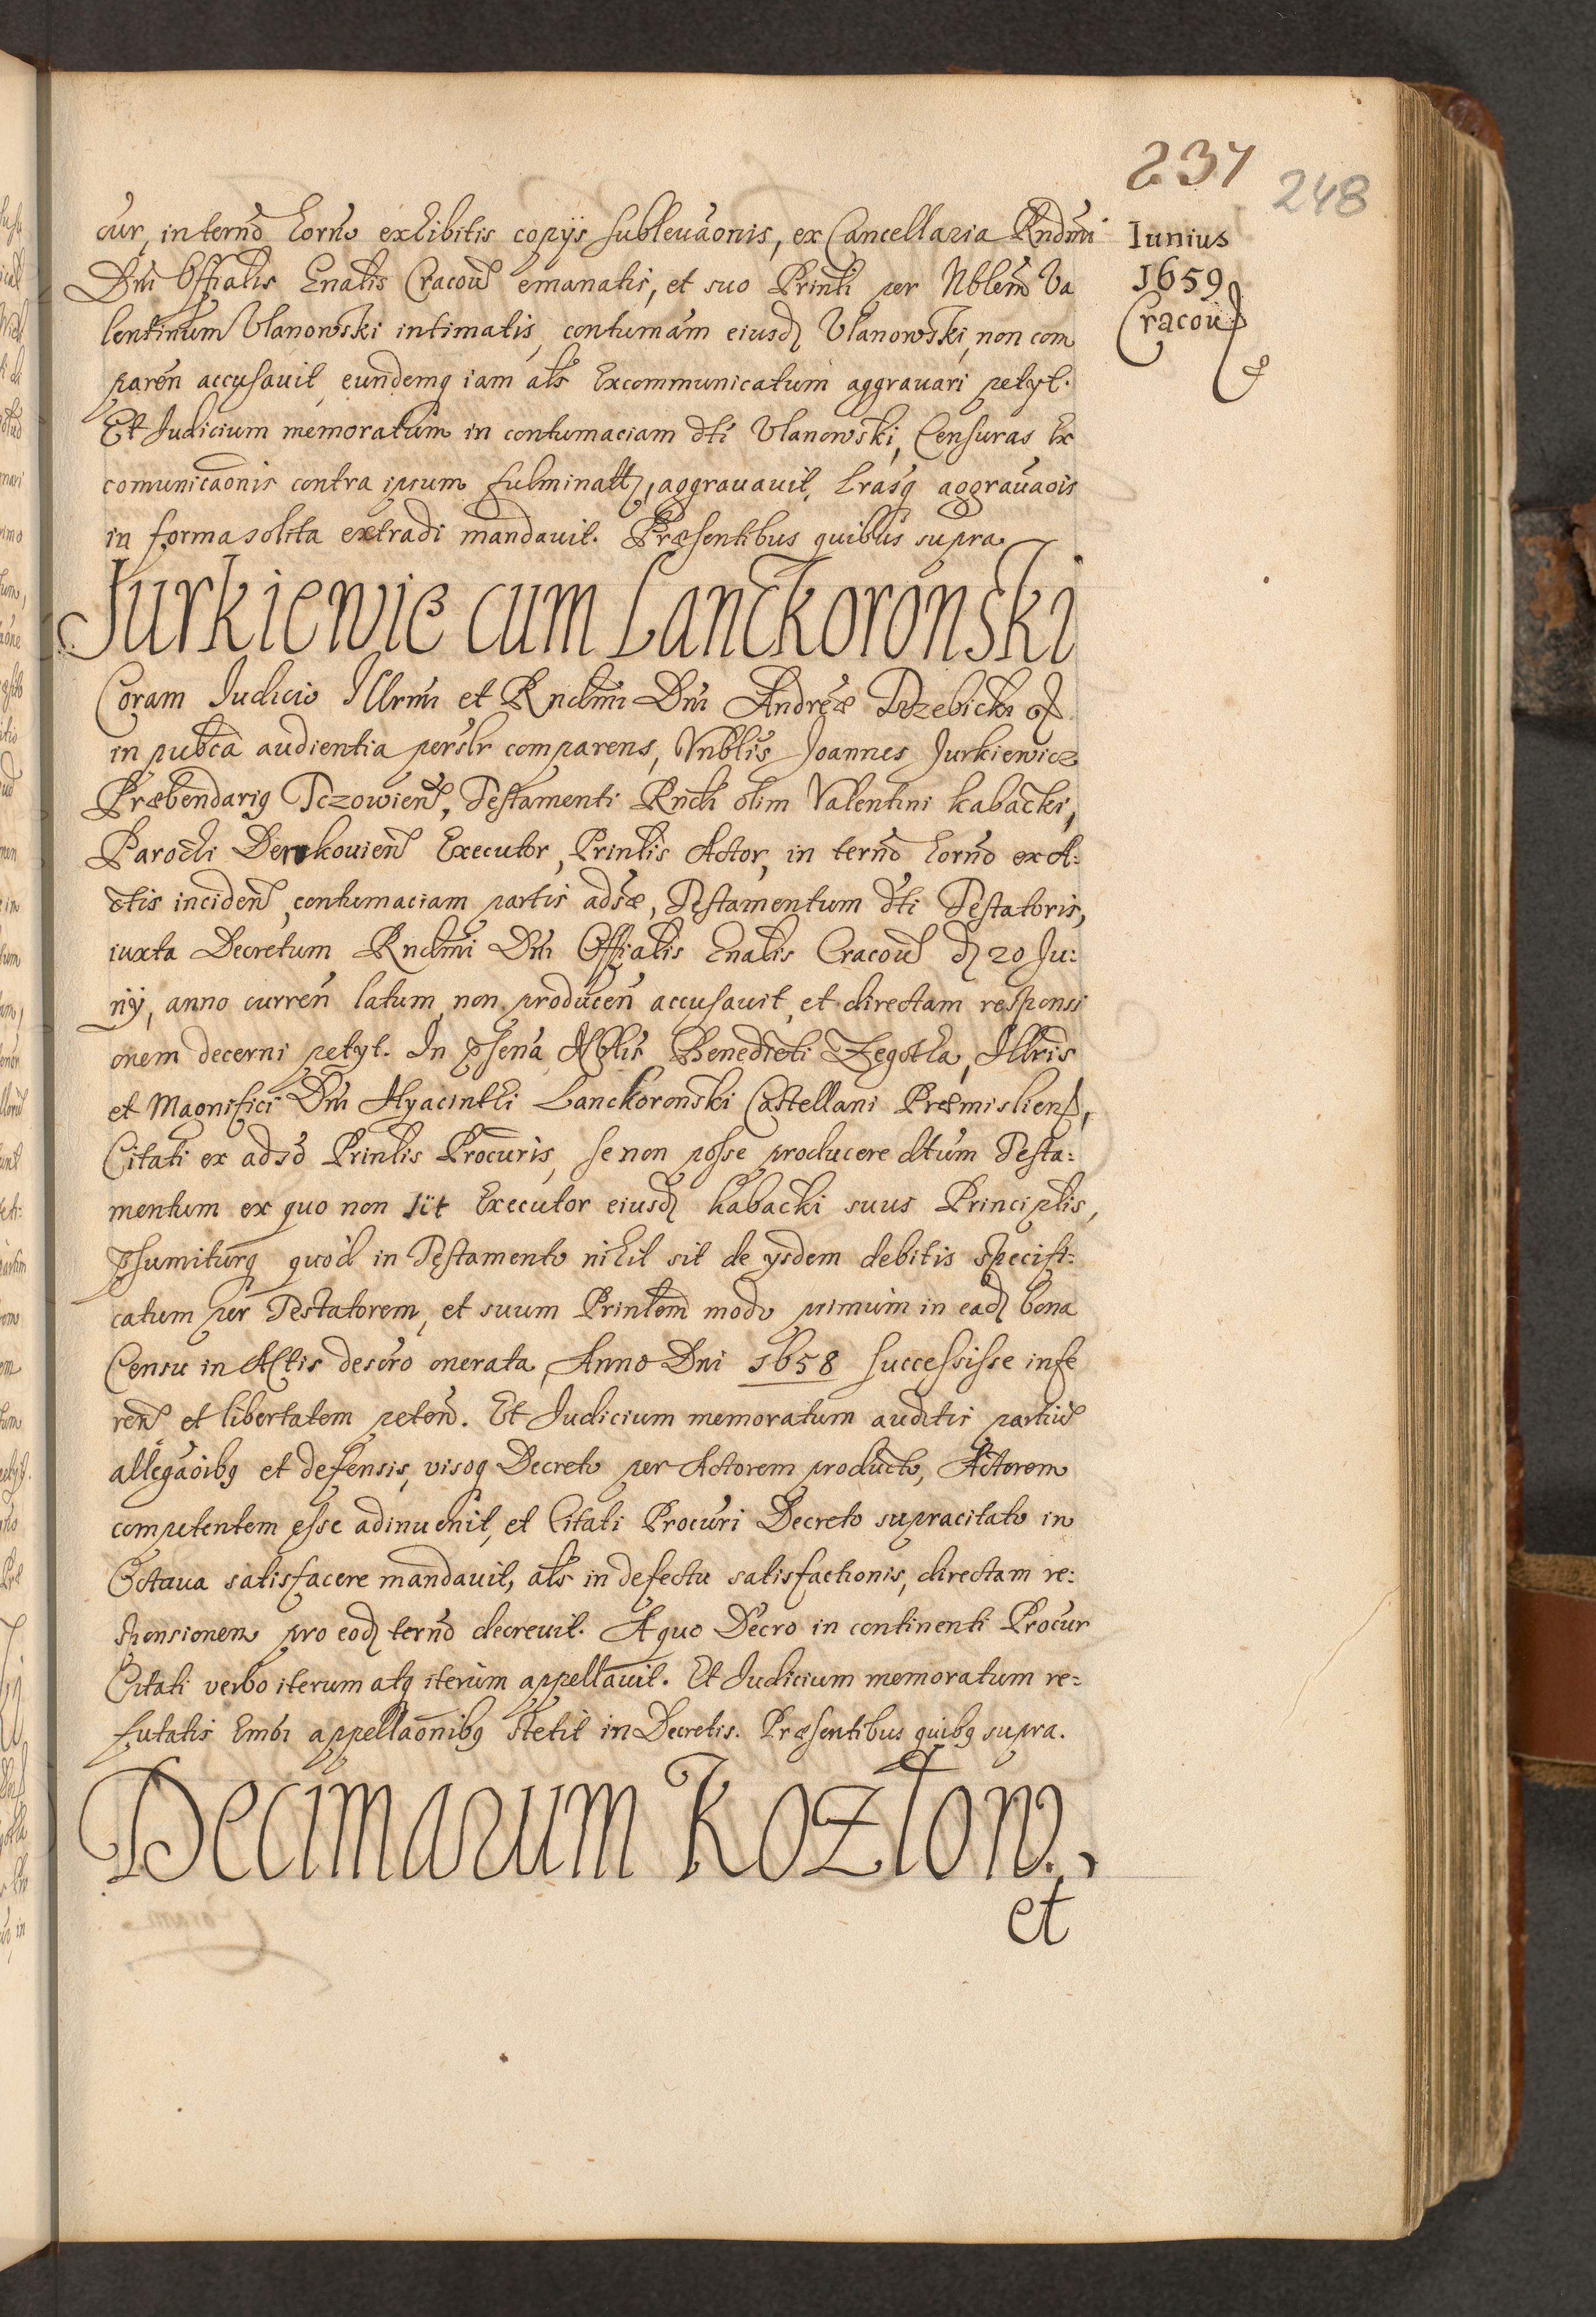 237
248
Iunius
1659
Cracou
cur, in termo horno exhibitis copijs subleuaonis, ex Cancellaria Rndmi
Dni Offialis Gnalis Cracou emanatis, et suo Prinli per Nblem Va
lentinum Vlanowski intimatis, contumam eiusd Vlanowski, non com
paren accusauit, eundemq iam als Excommunicatum aggrauari petyt.
Et Judicium memoratum in contumaciam dti Vlanowski, Censuras Ex
comunicaonis contra ipsum fulminatt, aggrauauit, lrasq aggrauaois
in forma solita extradi mandauit. Præsentibus quibus supra
Jurkiewic cum Lanckoronski
Coram Judicio Illrmi et Rndmi Dni Andreæ Trzebicki
in pubca audientia perslr comparens, Vnblis Joannes Jurkiewicz
Præbendariq Tczowien, Testamenti Rndi olim Valentini Kabacki,
Parochi Derskouien Executor, Prinlis Actor, in termo horno ex A:
ctis inciden, contumaciam partis adsæ, Testamentum dti Testatoris,
iuxta Decretum Rndmi Dni Offialis Gnalis Cracou d 20 Ju:
nÿ, anno curren latum, non producen accusauit, et directam responsi
onem decerni petyt. In psena Nblis Benedicti Zegotha, Illris
et Magnifici Dni Hyacinthi Lanckoronski Castellani Præmislien,
Citati ex adso Prinlis Procuris, se non posse producere dtum Testa:
mentum ex quo non sit Executor eiusd Kabacki suus Principlis,
psumiturq quod in Testamento nihil sit de ysdem debitis specifi:
catum per Testatorem, et suum Prinlem modo primum in ead bona
Censu in Actis desuro onerata, Anno Dni 1658 successisse infe
ren et libertatem peten. Et Judicium memoratum auditis partiu
allegaoibq et defensis, visoq Decreto per Actorem producto, Actorem
competentem esse adinuenit, et Citati Procuri Decreto supracitato in
Octaua satisfacere mandauit, als in defectu satisfactionis, directam re:
sponsionem pro eod termo decreuit. A quo Decro in continenti Procur
Citati verbo iterum atq iterum appellauit. Et Judicium memoratum re:
futatis hmoi appellaonibq stetit in Decretis. Præsentibus quibq supra.
Decimarum Kozłow.,
et